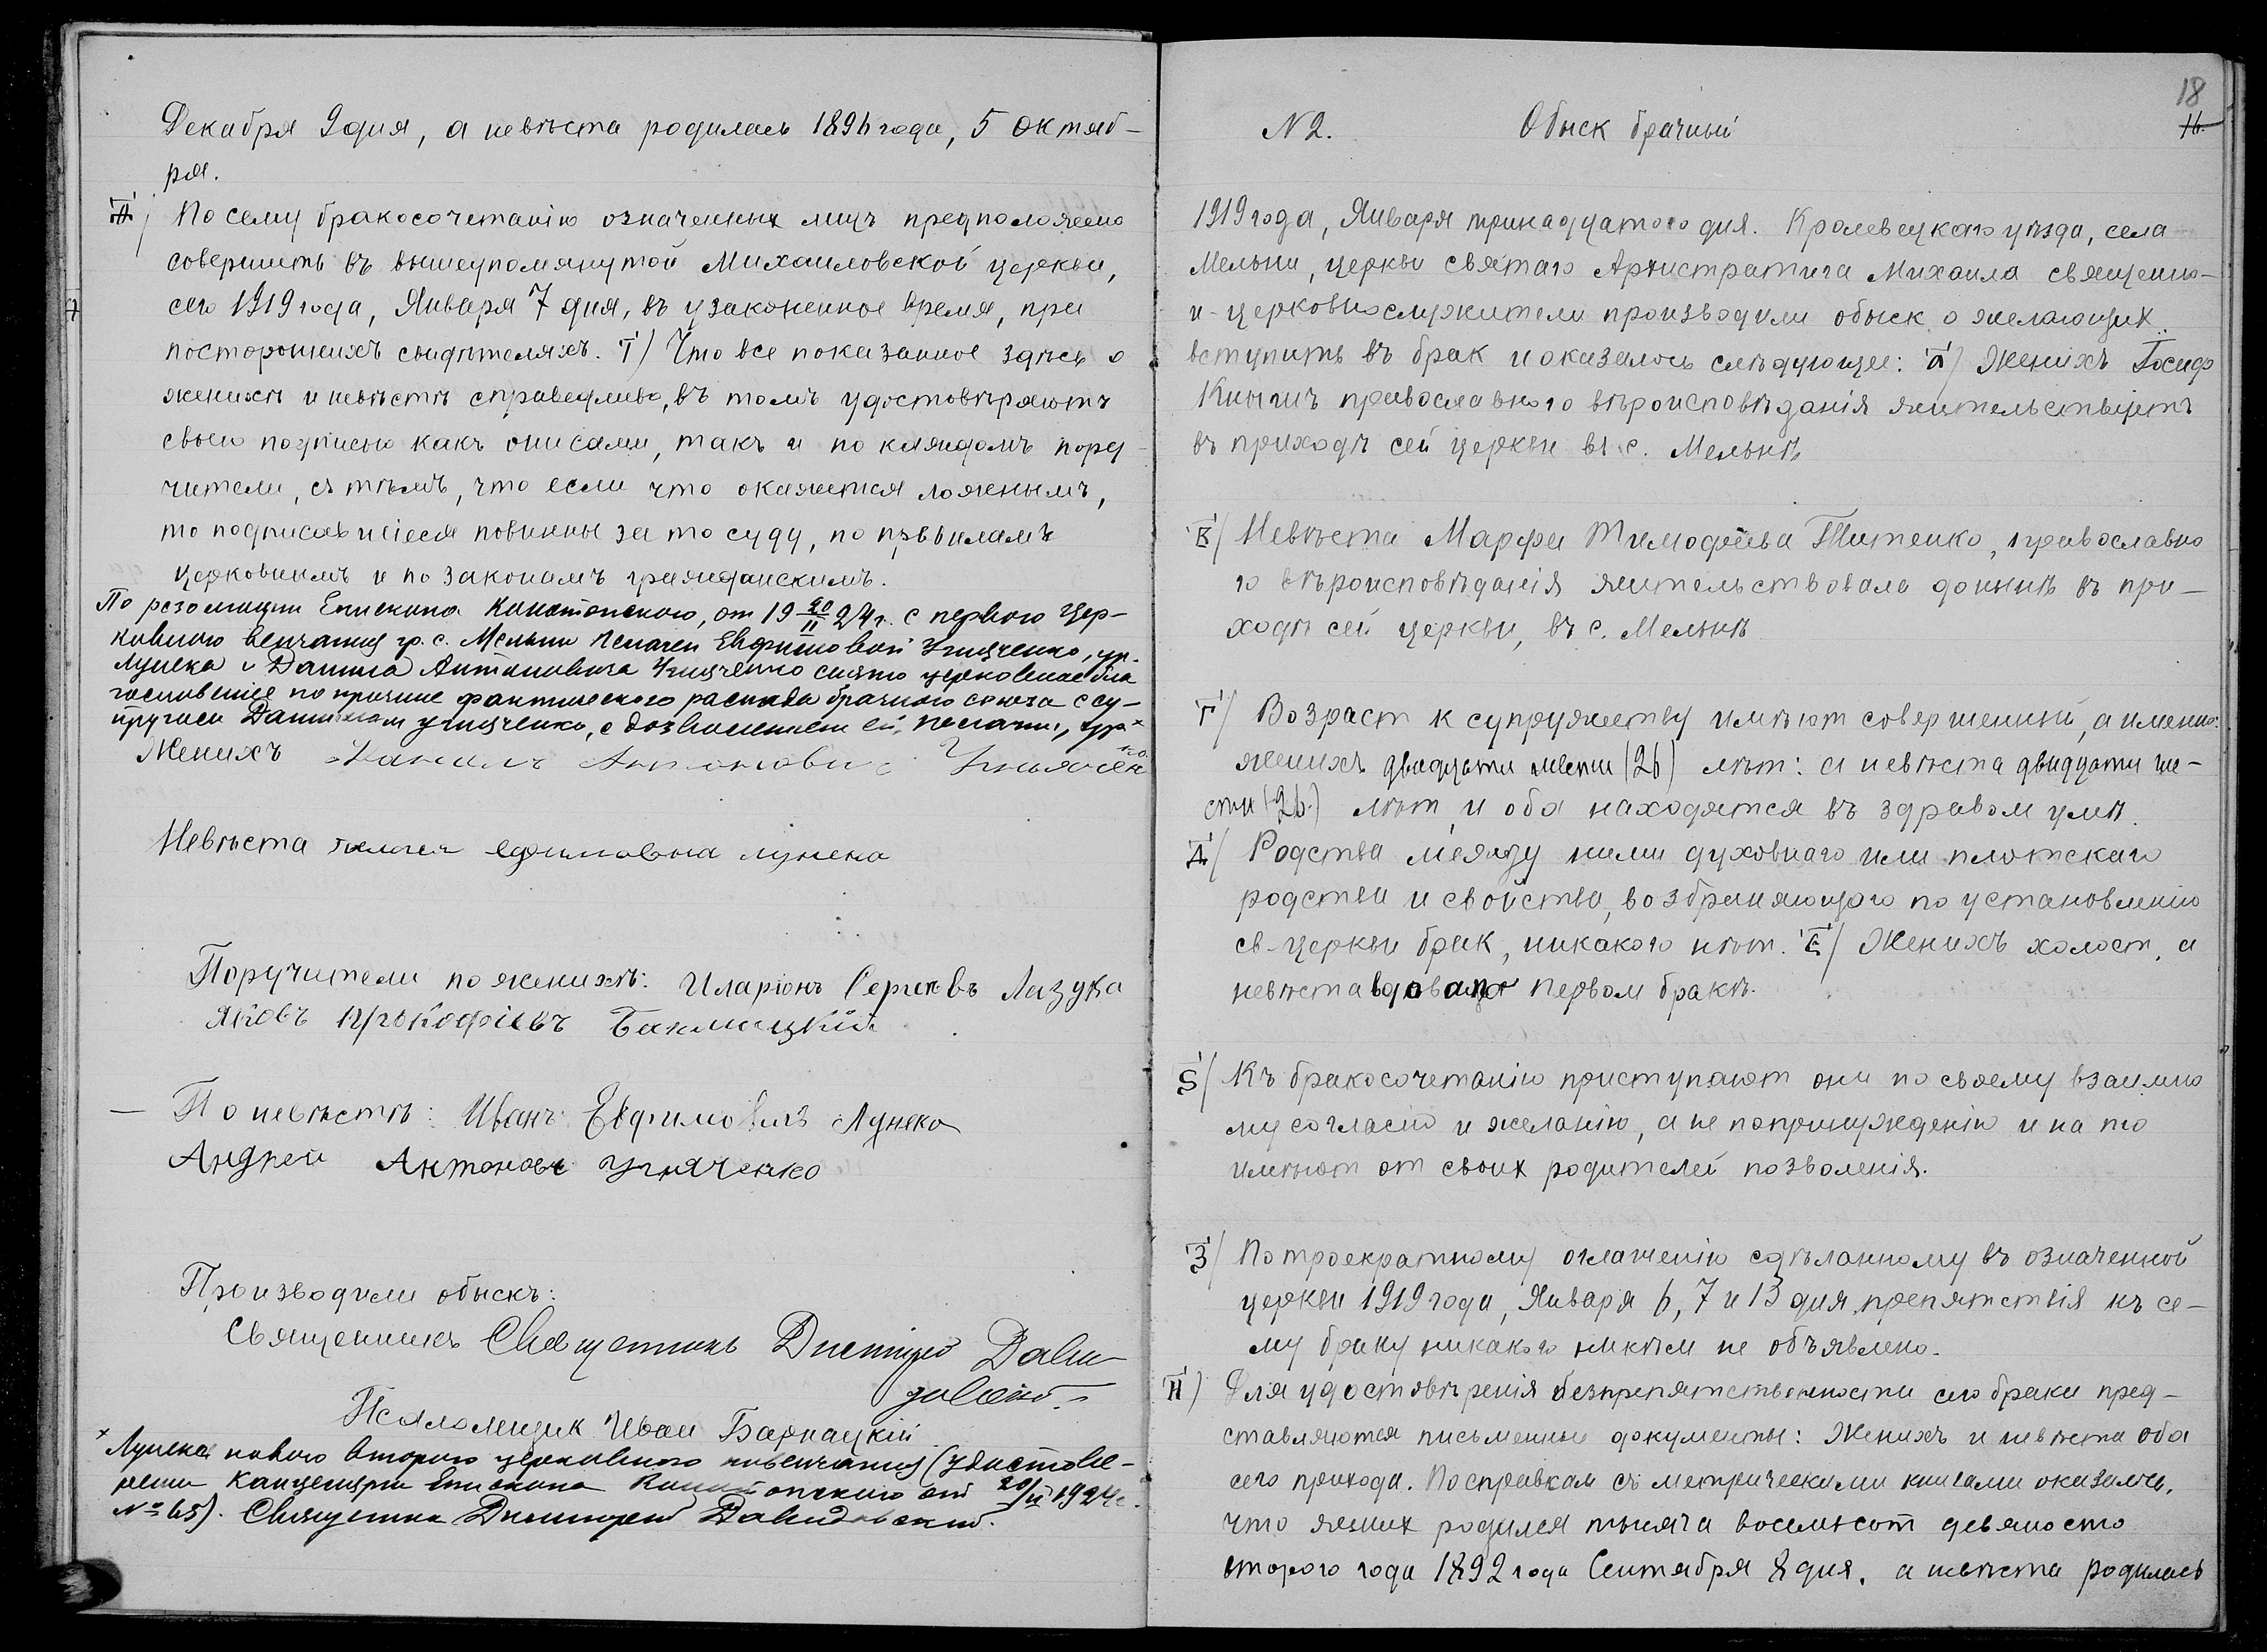 Декабря 9 дня, а невѣста родилась 1896 года, 5 октяб-
ря.
Посему бракосочетанію означенных лицъ предположено
совершить въ вышеупомянутой Михаиловской церкви,
сего 1919 года, Января 7 дня, въ узаконенное время, при
постороннихъ свидѣтеляхъ. І) Что все показанное здѣсь о
женихѣ и невѣстѣ справедливо, въ томъ удостовѣряютъ
своею подписью какъ они сами, такъ и по каждомъ пору
чители, съ тѣмъ, что если что окажется ложнымъ,
то подписавшіеся повинны за то суду, по правиламъ
церковнымъ и по законамъ гражданскимъ.
По резолюции Епископа Конотопского, от 19 20/II 24 г. с первого цер-
ковного венчания гр. с. Мельни Пелагеи Евфимовой Угнученко, ур.
Лунека и Данила Антоновича снято церковное бла
гословение по причине фактического распада брачного союза с су-
пругом Данилом, с дозволением ей, Пелагии,
Женихъ Данилъ Антоновичъ
Невѣста Пелагея Ефимовна Лунека
Поручители по женихѣ: Иларіонъ Сергеевъ Лазука
Яковъ Прокофіевъ Бахмацкій
— По невѣстѣ: Иванъ Евфимовичъ Лунека
Андрей Антоновъ
Производили обыскъ:
Священникъ Священникъ Димитрій Дави-
довскій
Псаломщик Иван Барнацкій
× Лунека нового второго церковного повенчания (удостове-
рение канцелярии Епископа Конотопского от 20/II 1924 г.
№ 65). Священник Димитрий Давидовский.
18
16.
N 2. Обыск брачный
1919 года, Января тринадцатого дня. Кролевецкаго уѣзда, села
Мельни, церкви святаго Архистратига Михаила священно-
и-церковнослужители производили обыск о желающих
вступить въ брак и оказалось слѣдующее: а) Женихъ Іосиф
православного вѣроисповѣданія жительствуетъ
въ приходѣ сей церкви въ с. Мельнѣ
В) Невѣста Марфа Тимофѣева Титенко, православно
го вѣроисповѣданія жительствовала донынѣ въ при-
ходѣ сей церкви, въ с. Мельнѣ
Г) Возраст к супружеству имѣют совершенный, а именно:
женихъ двадцати шести (26) лѣт: а невѣста двадцати ше-
сти (26.) лѣт, и оба находятся въ здравом умѣ.
Д) Родства между ними духовнаго или плотскаго
родства и свойства, возбраняющаго по установленію
св. церкви брак, никакого нѣт. Е) Женихъ холост, а
невѣста вдова по первом бракѣ.
Ѕ) Къ бракосочетанію приступают они по своему взаимно
му согласію и желанію, а не по принужденію и на то
имѣют от своих родителей позволенія.
З) По троекратному оглашенію сдѣланному въ означенной
церкви 1919 года, Января 6, 7 и 13 дня, препятствія къ се-
му браку никакого никѣм не объявлено.
Н) Для удостовѣренія безпрепятственности сего брака пред-
ставляются письменные документы: Женихъ и невѣста оба
сего прихода. По справкам съ метрическими книгами оказалось,
что жених родился тысяча восемьсот девяносто
второго года 1892 года Сентября 8 дня, а невѣста родилась